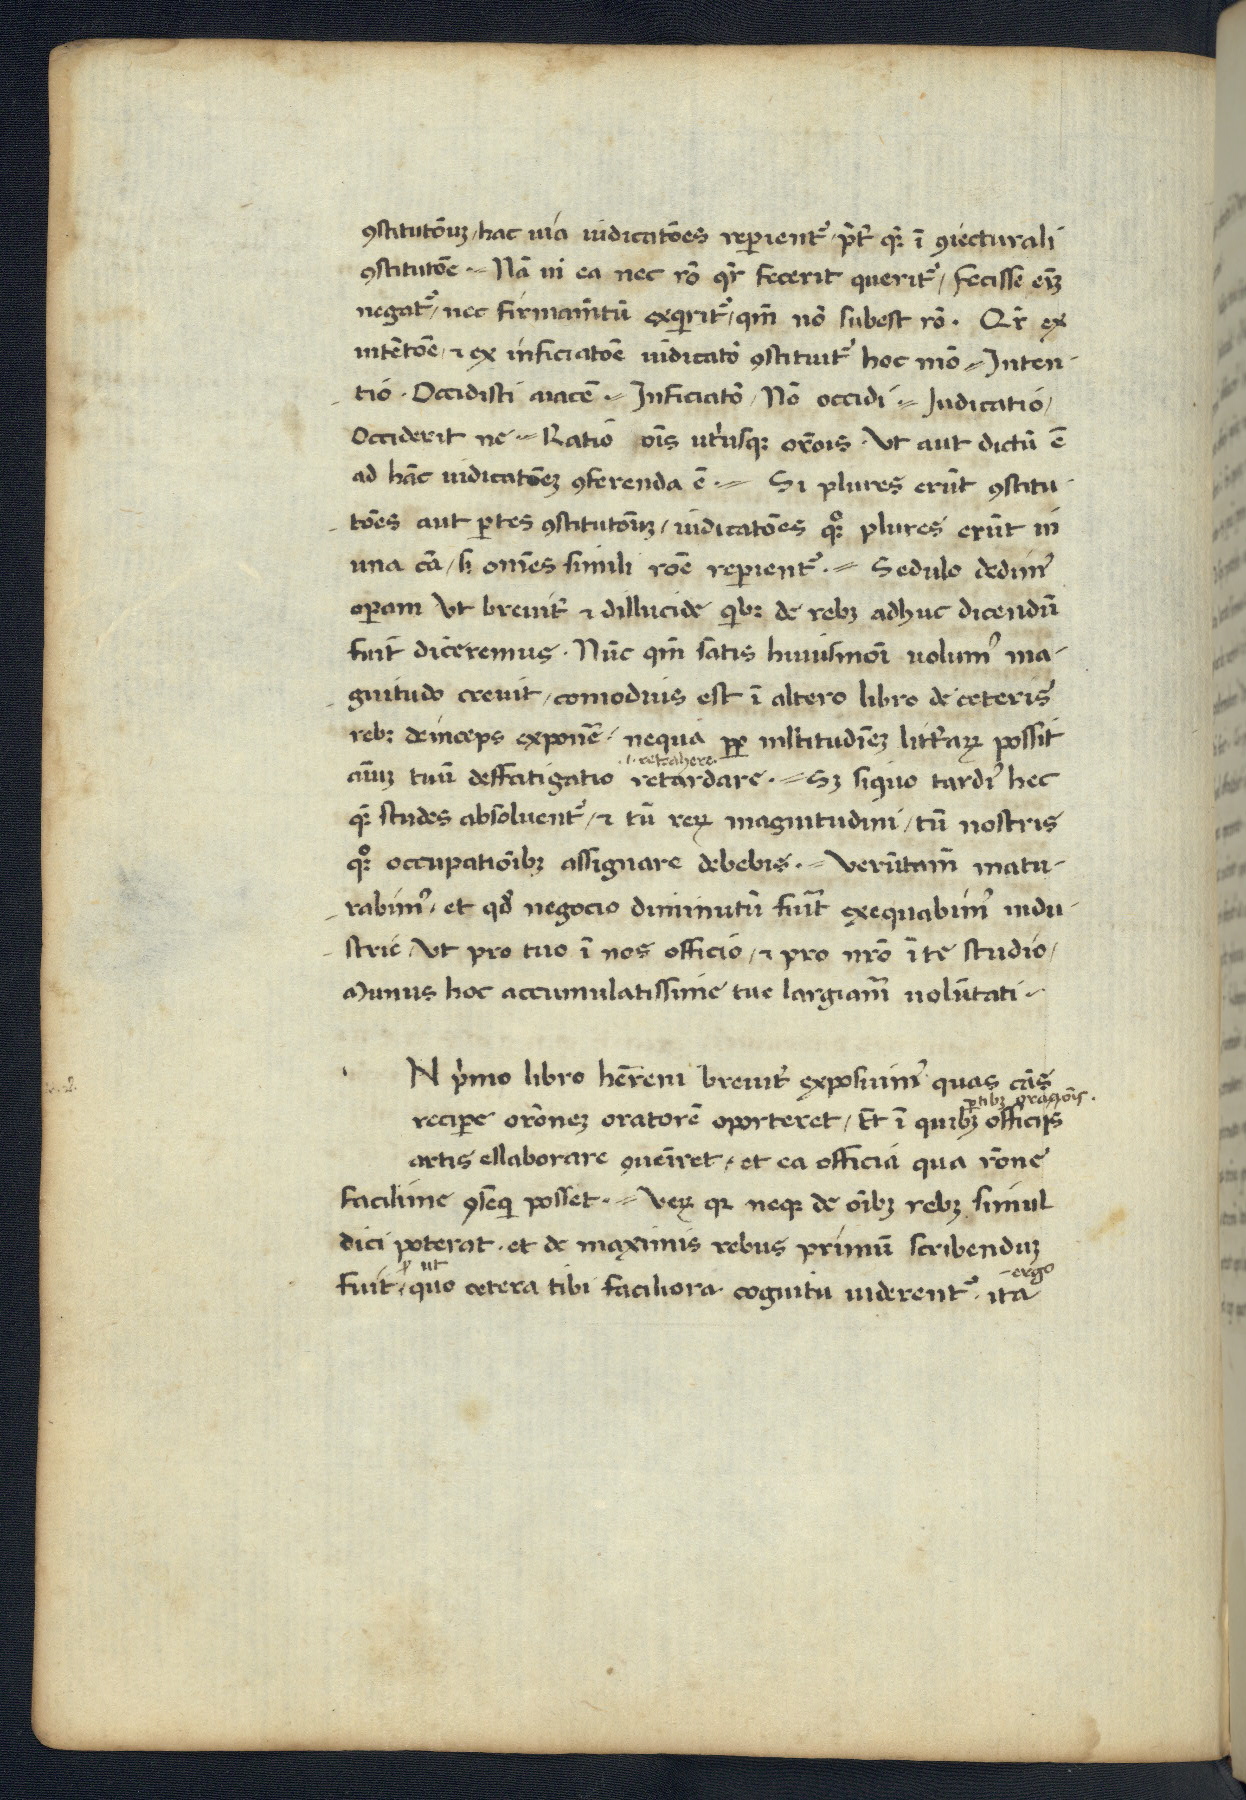 ꝯstitutõuꝫ / hac uia iudicatões reperient᷑ / p̃t̃ q̃ ĩ ꝯiecturali
ꝯstitutõe · Nã in ea nec rõ qr̃ fecerit querit᷑ / fecisse eĩꝫ
negat᷑ / nec firmam̃tũ exq̃rit᷑ / qm̃ nõ subest rõ · Qr̃ ex
intẽtõe / ⁊ ex inficiatõe iudicatõ ꝯstituit᷑ hoc mõ · Inten-
tio · Occidisti aiacẽ · Inficiatõ / Nõ occidi · Iudicatio /
Occiderit ne · Ratio oĩs utriusqꝫ orõis · Vt aut dictũ ẽ
ad hãc iudicatõeꝫ ꝯferenda ẽ · Si plures erũt ꝯstitu-
tões aut ꝑtes ꝯstitutõuꝫ / iudicatões qꝫ plures erũt in
una cã / si om̃es simili rõe reperient᷑ · Sedulo dedimꝰ
operam Vt breuit̃ ⁊ dillucide qͥbꝫ de rebꝫ adhuc dicendũ
fuit diceremus · Nũc qm̃ satis huiusmõi uolumꝰ ma-
gnitudo creuit / comodius est ĩ altero libro de ceteris
rebꝫ deinceps exponẽ · nequa ꝓp mltitudĩeꝫ litt̃aꝝ possit
.i. retrahere.
aĩuꝫ tuũ deffatigatio retardare · Sꝫ siquo tardiꝰ hec
q̃ studes absoluent᷑ / ⁊ tũ reꝝ magnitudini / tũ nostris
qꝫ occupatiõibꝫ assignare debebis · Verũtam̃ matu-
rabimꝰ / et qđ negocio diminutũ fuĩt exequabimꝰ indu-
strie / Vt pro tuo ĩ nos officio / ⁊ pro nr̃o ĩ te studio /
Munus hoc accumulatissime tue largiam̃ uolũtati

N pͥmo libro hẽreni breuit̃ exposuimꝰ quas cãs
ꝑtibꝫ orationis.
recipe orõneꝫ oratorẽ oporteret / Et ĩ quibꝫ officijs
artis ellaborare ꝯueĩret / et ea officia qua rõne
facilime ꝯseq̃ posset · Veꝝ qꝛ neqꝫ de oĩbꝫ rebꝫ simul
dici poterat · et de maximis rebus primũ scribenduꝫ
ut ergo
fuit / quo cetera tibi faciliora cognitu uiderent᷑ · ita